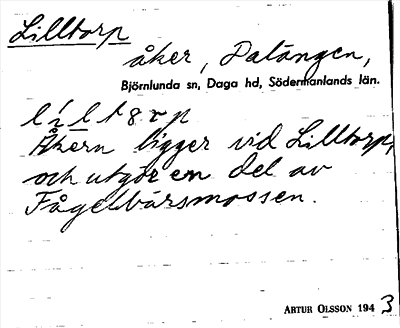 Lilltorp
åker, Dalängen,
Björnlunda sn, Daga hd, Södermanlands län.
Åkern ligger vid Lilltorp,
och utgör en del av
Fågelbärsmossen.
ARTUR OLSSON 1943